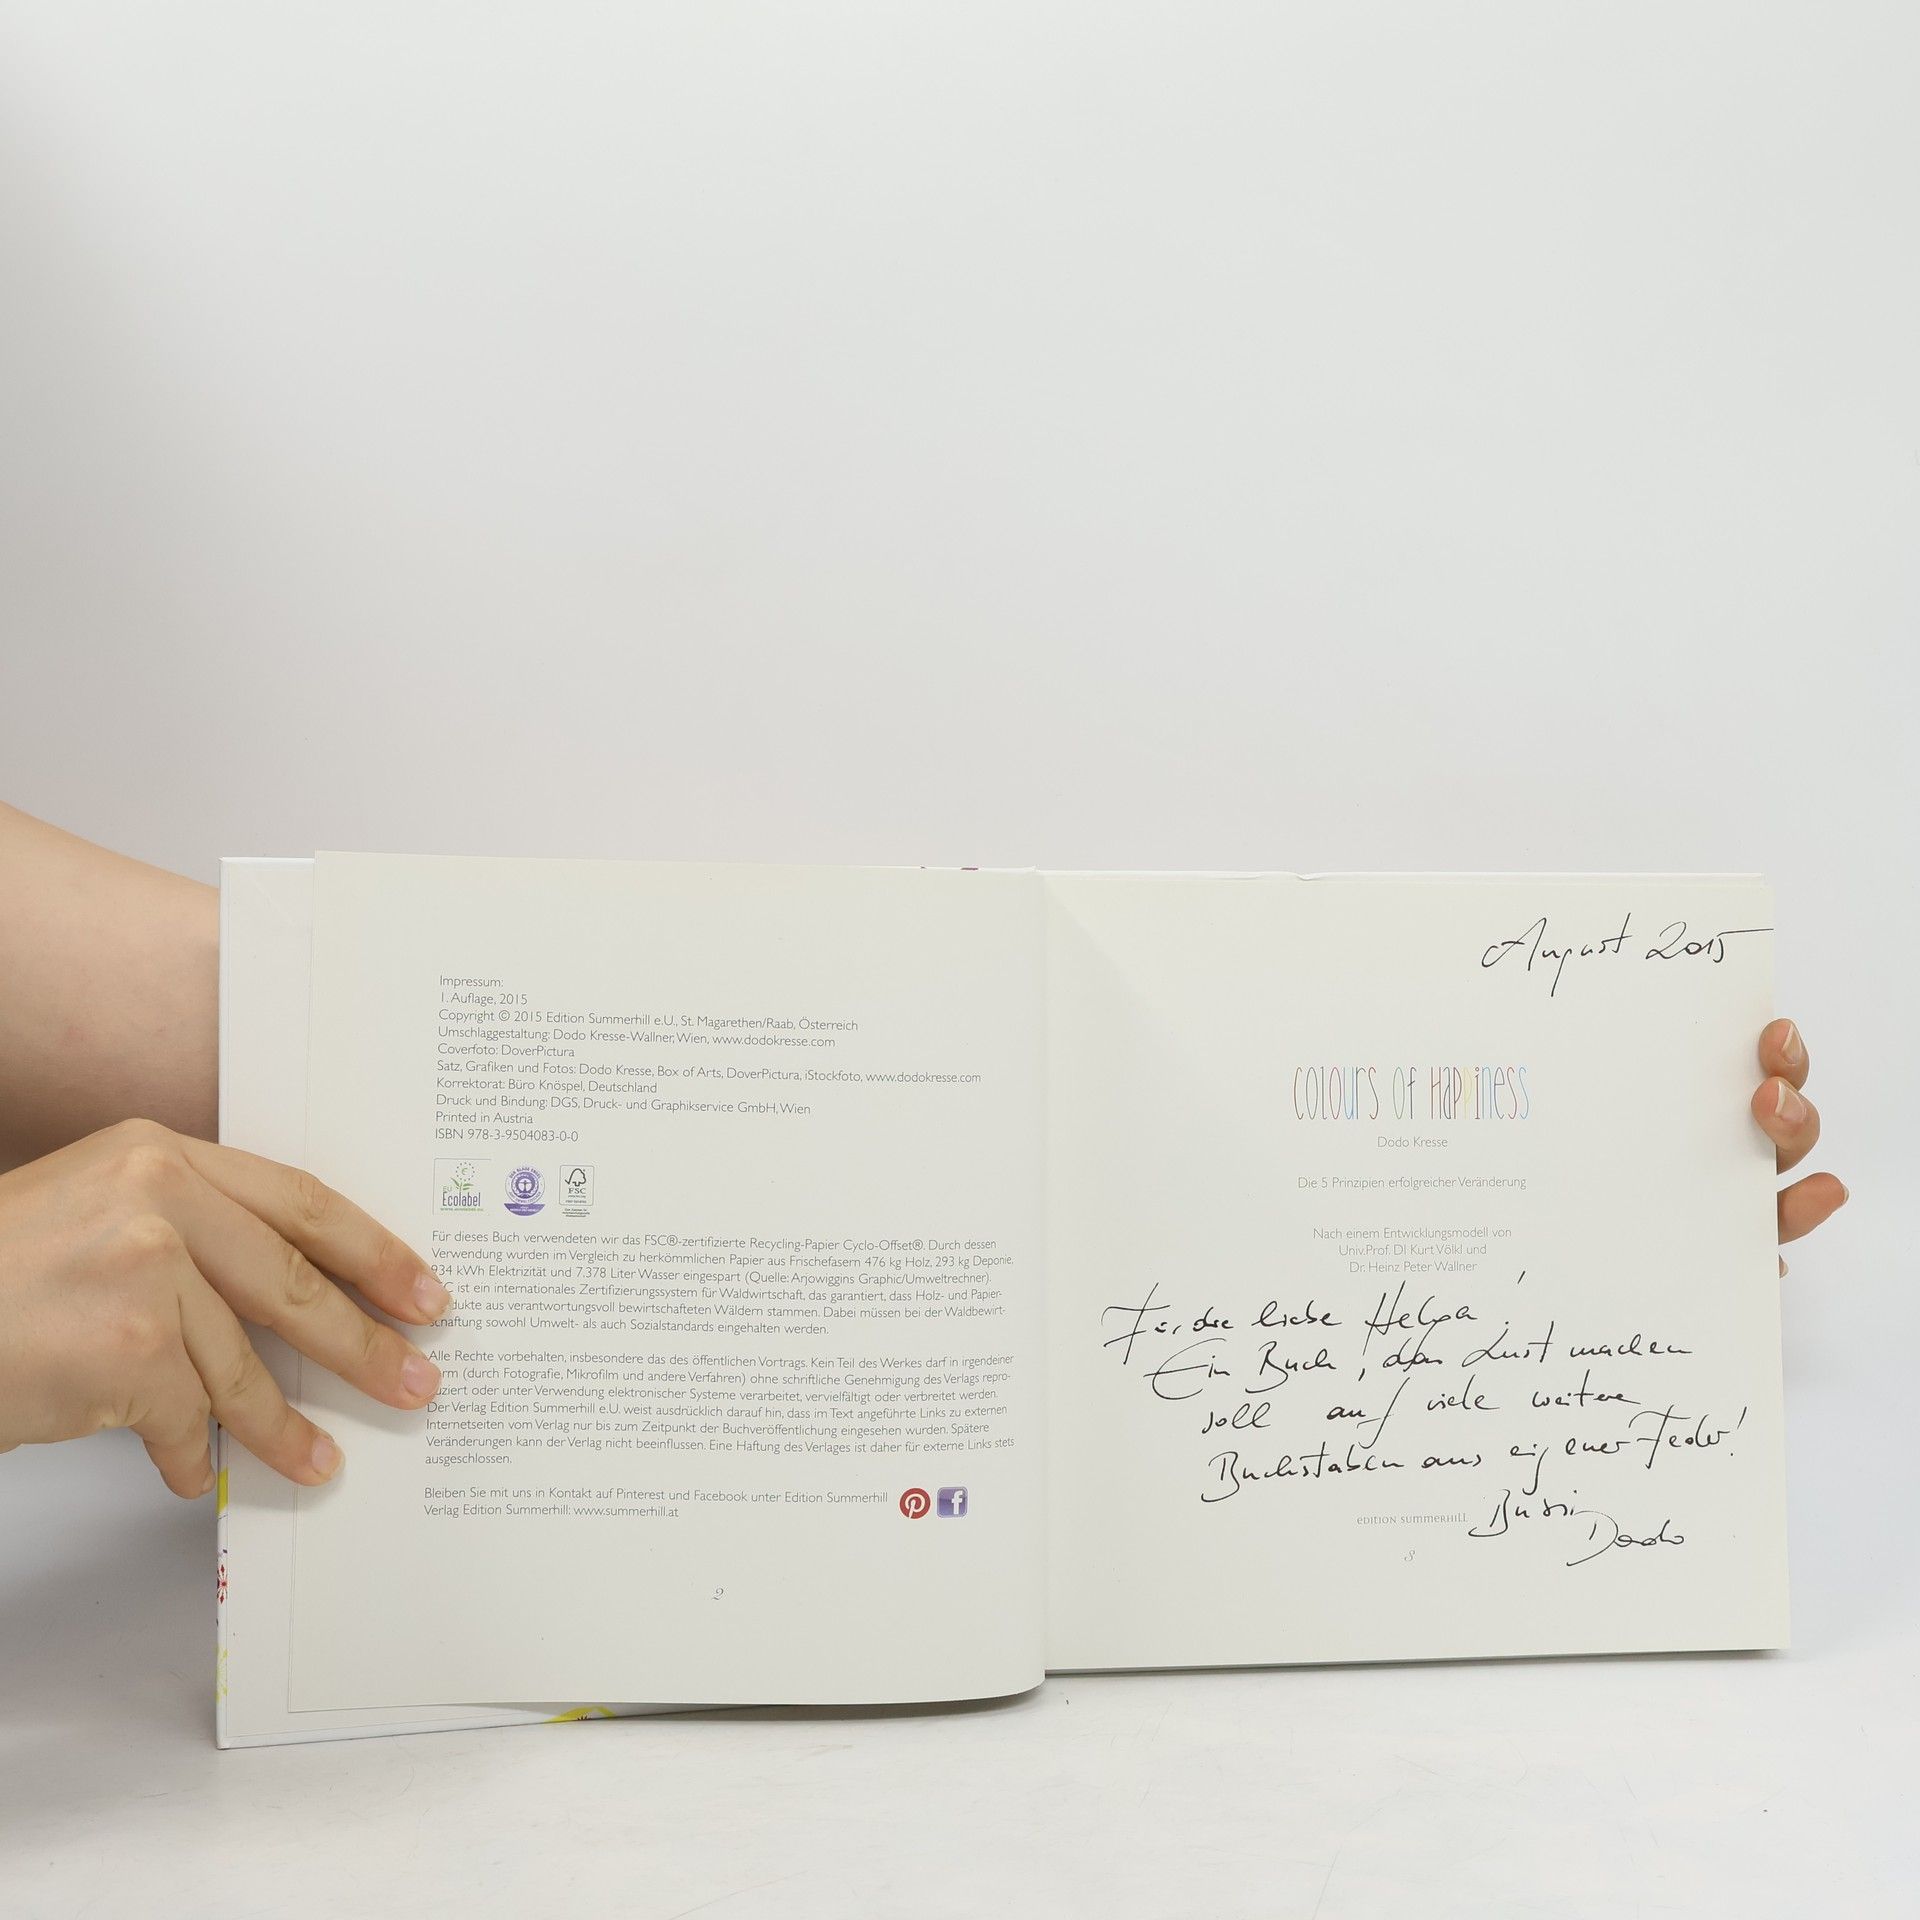 Impressum:
1. Auflage, 2015
Copyright © 2015 Edition Summerhill e.U., St. Magarethen/Raab, Österreich
Umschlaggestaltung: Dodo Kresse-Wallner, Wien, www.dodokresse.com
Coverfoto: DoverPictura
Satz, Grafiken und Fotos: Dodo Kresse, Box of Arts, DoverPictura, iStockfoto, www.dodokresse.com
Korrektorat: Büro Knöspel, Deutschland
Druck und Bindung: DGS, Druck- und Graphikservice GmbH, Wien
Printed in Austria
ISBN 978-3-9504083-0-0
EU Ecolabel
www.ecolabel.eu
FSC
Für dieses Buch verwendeten wir das FSC®-zertifizierte Recycling-Papier Cyclo-Offset®. Durch dessen
Verwendung wurden im Vergleich zu herkömmlichen Papier aus Frischefasern 476 kg Holz, 293 kg Deponie,
934 kWh Elektrizität und 7.378 Liter Wasser eingespart (Quelle: Arjowiggins Graphic/Umweltrechner).
C ist ein internationales Zertifizierungssystem für Waldwirtschaft, das garantiert, dass Holz- und Papier-
dukte aus verantwortungsvoll bewirtschafteten Wäldern stammen. Dabei müssen bei der Waldbewirt-
schaftung sowohl Umwelt- als auch Sozialstandards eingehalten werden.
Alle Rechte vorbehalten, insbesondere das des öffentlichen Vortrags. Kein Teil des Werkes darf in irgendeiner
orm (durch Fotografie, Mikrofilm und andere Verfahren) ohne schriftliche Genehmigung des Verlags repro-
duziert oder unter Verwendung elektronischer Systeme verarbeitet, vervielfältigt oder verbreitet werden.
Der Verlag Edition Summerhill e.U. weist ausdrücklich darauf hin, dass im Text angeführte Links zu externen
Internetseiten vom Verlag nur bis zum Zeitpunkt der Buchveröffentlichung eingesehen wurden. Spätere
Veränderungen kann der Verlag nicht beeinflussen. Eine Haftung des Verlages ist daher für externe Links stets
ausgeschlossen.
Bleiben Sie mit uns in Kontakt auf Pinterest und Facebook unter Edition Summerhill
Verlag Edition Summerhill: www.summerhill.at
2
August 2015
COLOURS OF HAPPINESS
Dodo Kresse
Die 5 Prinzipien erfolgreicher Veränderung
Nach einem Entwicklungsmodell von
Univ.Prof. DI Kurt Völkl und
Dr. Heinz Peter Wallner
Für die liebe Helga!
Ein Buch, das Lust machen
soll auf viele weitere
Buchstaben aus eigener Feder!
EDITION SUMMERHILL
Bussi
Dodo
3